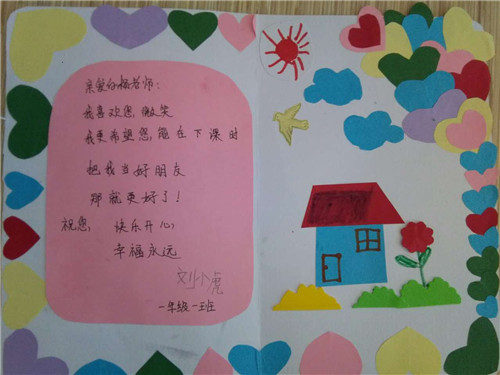 亲爱的杨老师：
我喜欢您，微笑
我更希望您，能在下课时
把我当好朋友
那就更好了！
祝您，快乐开心，
幸福永远
刘小虎
一年级一班